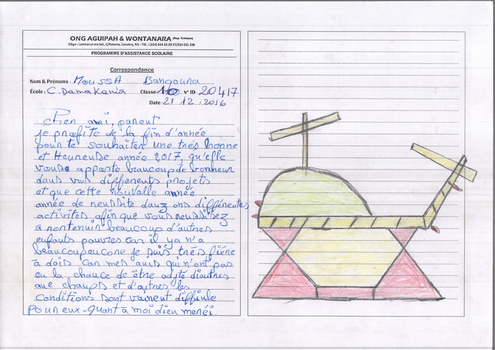 ONG AGUIPAH & WONTANARA
PROGRAMME D'ASSISTANCE SCOLAIRE
Correspondance
Nom & Prénoms : MoussA Bangoura
École : C. Damakania Classe : 10 n° ID: 20417
Date 21 12 2016
parent
je profite de la fin d'année
pour te souhaiter une très bonne
et Heureuse année 2017, qu'elle
vous apporte beaucoup de bonheur
dans vos différents projets
et que cette nouvelle année
année de reussite dans différentes
activités afin que vous
beaucoup d'autres
enfants pauvres car il ya n'a
beaucoup je suis très
à dois car mes amis qui n'ont pas
eu la chance de être aidé d'autres
aux champs et d'autres les
conditions sont vraiment difficile
Pour eux-Quant à moi dieu merci